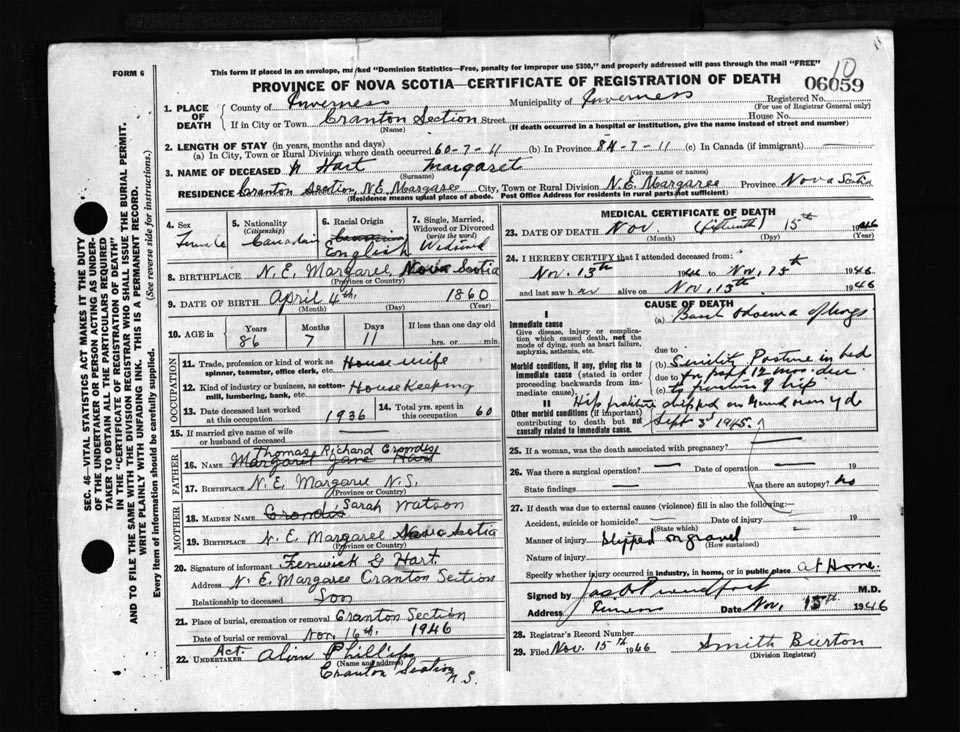 10
FORM 6
This form if placed in an envelope, marked "Dominion Statistics—Free, penalty for improper use $300," and properly addressed will pass through the mail "FREE"
PROVINCE OF NOVA SCOTIA—CERTIFICATE OF REGISTRATION OF DEATH
06059
1. PLACE OF DEATH
County of Inverness Municipality of Inverness Registered No.
(For use of Registrar General only)
If in City or Town Cranton Section Street House No.
(Name) (If death occurred in a hospital or institution, give the name instead of street and number)
2. LENGTH OF STAY (in years, months and days)
(a) In City, Town or Rural Division where death occurred 60-7-11 (b) In Province 84-7-11 (c) In Canada (if immigrant)
3. NAME OF DECEASED Hart Margaret
(Surname) (Given name or names)
RESIDENCE Cranton Section, N.E. Margaree City, Town or Rural Division N.E. Margaree Province Nova Scotia
(Residence means usual place of abode. Post Office Address for residents in rural parts not sufficient)
4. Sex
Female
5. Nationality
(Citizenship)
Canadian
6. Racial Origin
English
7. Single, Married, Widowed or Divorced
(write the word)
Widowed
8. BIRTHPLACE N.E. Margaree Nova Scotia
(Province or Country)
9. DATE OF BIRTH April 4th, 1860
(Month) (Day) (Year)
10. AGE in
Years Months Days If less than one day old
86 7 11 hrs. or min.
OCCUPATION
11. Trade, profession or kind of work as spinner, teamster, office clerk, etc. House wife
12. Kind of industry or business, as cotton-mill, lumbering, bank, etc. House Keeping
13. Date deceased last worked at this occupation 1936
14. Total yrs. spent in this occupation 60
15. If married give name of wife or husband of deceased
FATHER
Thomas Richard Crowdis
16. NAME Margaret Jane Hart
17. BIRTHPLACE N.E. Margaree N.S.
(Province or Country)
MOTHER
18. MAIDEN NAME Crowdis Sarah Watson
19. BIRTHPLACE N.E. Margaree Nova Scotia
(Province or Country)
20. Signature of informant Fenwick G Hart.
Address N.E. Margaree Cranton Section
Relationship to deceased Son
21. Place of burial, cremation or removal Cranton Section
Date of burial or removal Nov. 16th, 1946
Act.
22. UNDERTAKER Alvin Phillips
(Name and address)
Cranton Section
N.S.
MEDICAL CERTIFICATE OF DEATH
23. DATE OF DEATH Nov. (fifteenth) 15th 1946
(Month) (Day)
24. I HEREBY CERTIFY that I attended deceased from:
Nov. 13th 1946 to Nov. 15th 1946
and last saw her alive on Nov. 15th 1946
CAUSE OF DEATH
I
Immediate cause
Give disease, injury or complication which caused death, not the mode of dying, such as heart failure, asphyxia, asthenia, etc.
(a) Oedema of lungs
due to
Morbid conditions, if any, giving rise to immediate cause (stated in order proceeding backwards from immediate cause).
(b) Senility Posture in bed
due to for past 12 mos. due
(c) to fracture of hip
II
Other morbid conditions (if important) contributing to death but not causally related to immediate cause.
Hip fracture slipped on
Sept 3rd 1945.
25. If a woman, was the death associated with pregnancy?
26. Was there a surgical operation? Date of operation 19
State findings Was there an autopsy? no
27. If death was due to external causes (violence) fill in also the following:—
Accident, suicide or homicide? Date of injury 19
(State which)
Manner of injury slipped on gravel
(How sustained)
Nature of injury
Specify whether injury occurred in industry, in home, or in public place at Home.
Signed by M.D.
Address Date Nov. 15th 1946
28. Registrar's Record Number
29. Filed Nov. 15th 1946 Smith Burton
(Division Registrar)
SEC. 46—VITAL STATISTICS ACT MAKES IT THE DUTY
OF THE UNDERTAKER OR PERSON ACTING AS UNDER-
TAKER TO OBTAIN ALL THE PARTICULARS REQUIRED
IN THE "CERTIFICATE OF REGISTRATION OF DEATH"
AND TO FILE THE SAME WITH THE DIVISION REGISTRAR WHO SHALL ISSUE THE BURIAL PERMIT.
WRITE PLAINLY WITH UNFADING INK. THIS IS A PERMANENT RECORD.
Every item of information should be carefully supplied. (See reverse side for instructions.)